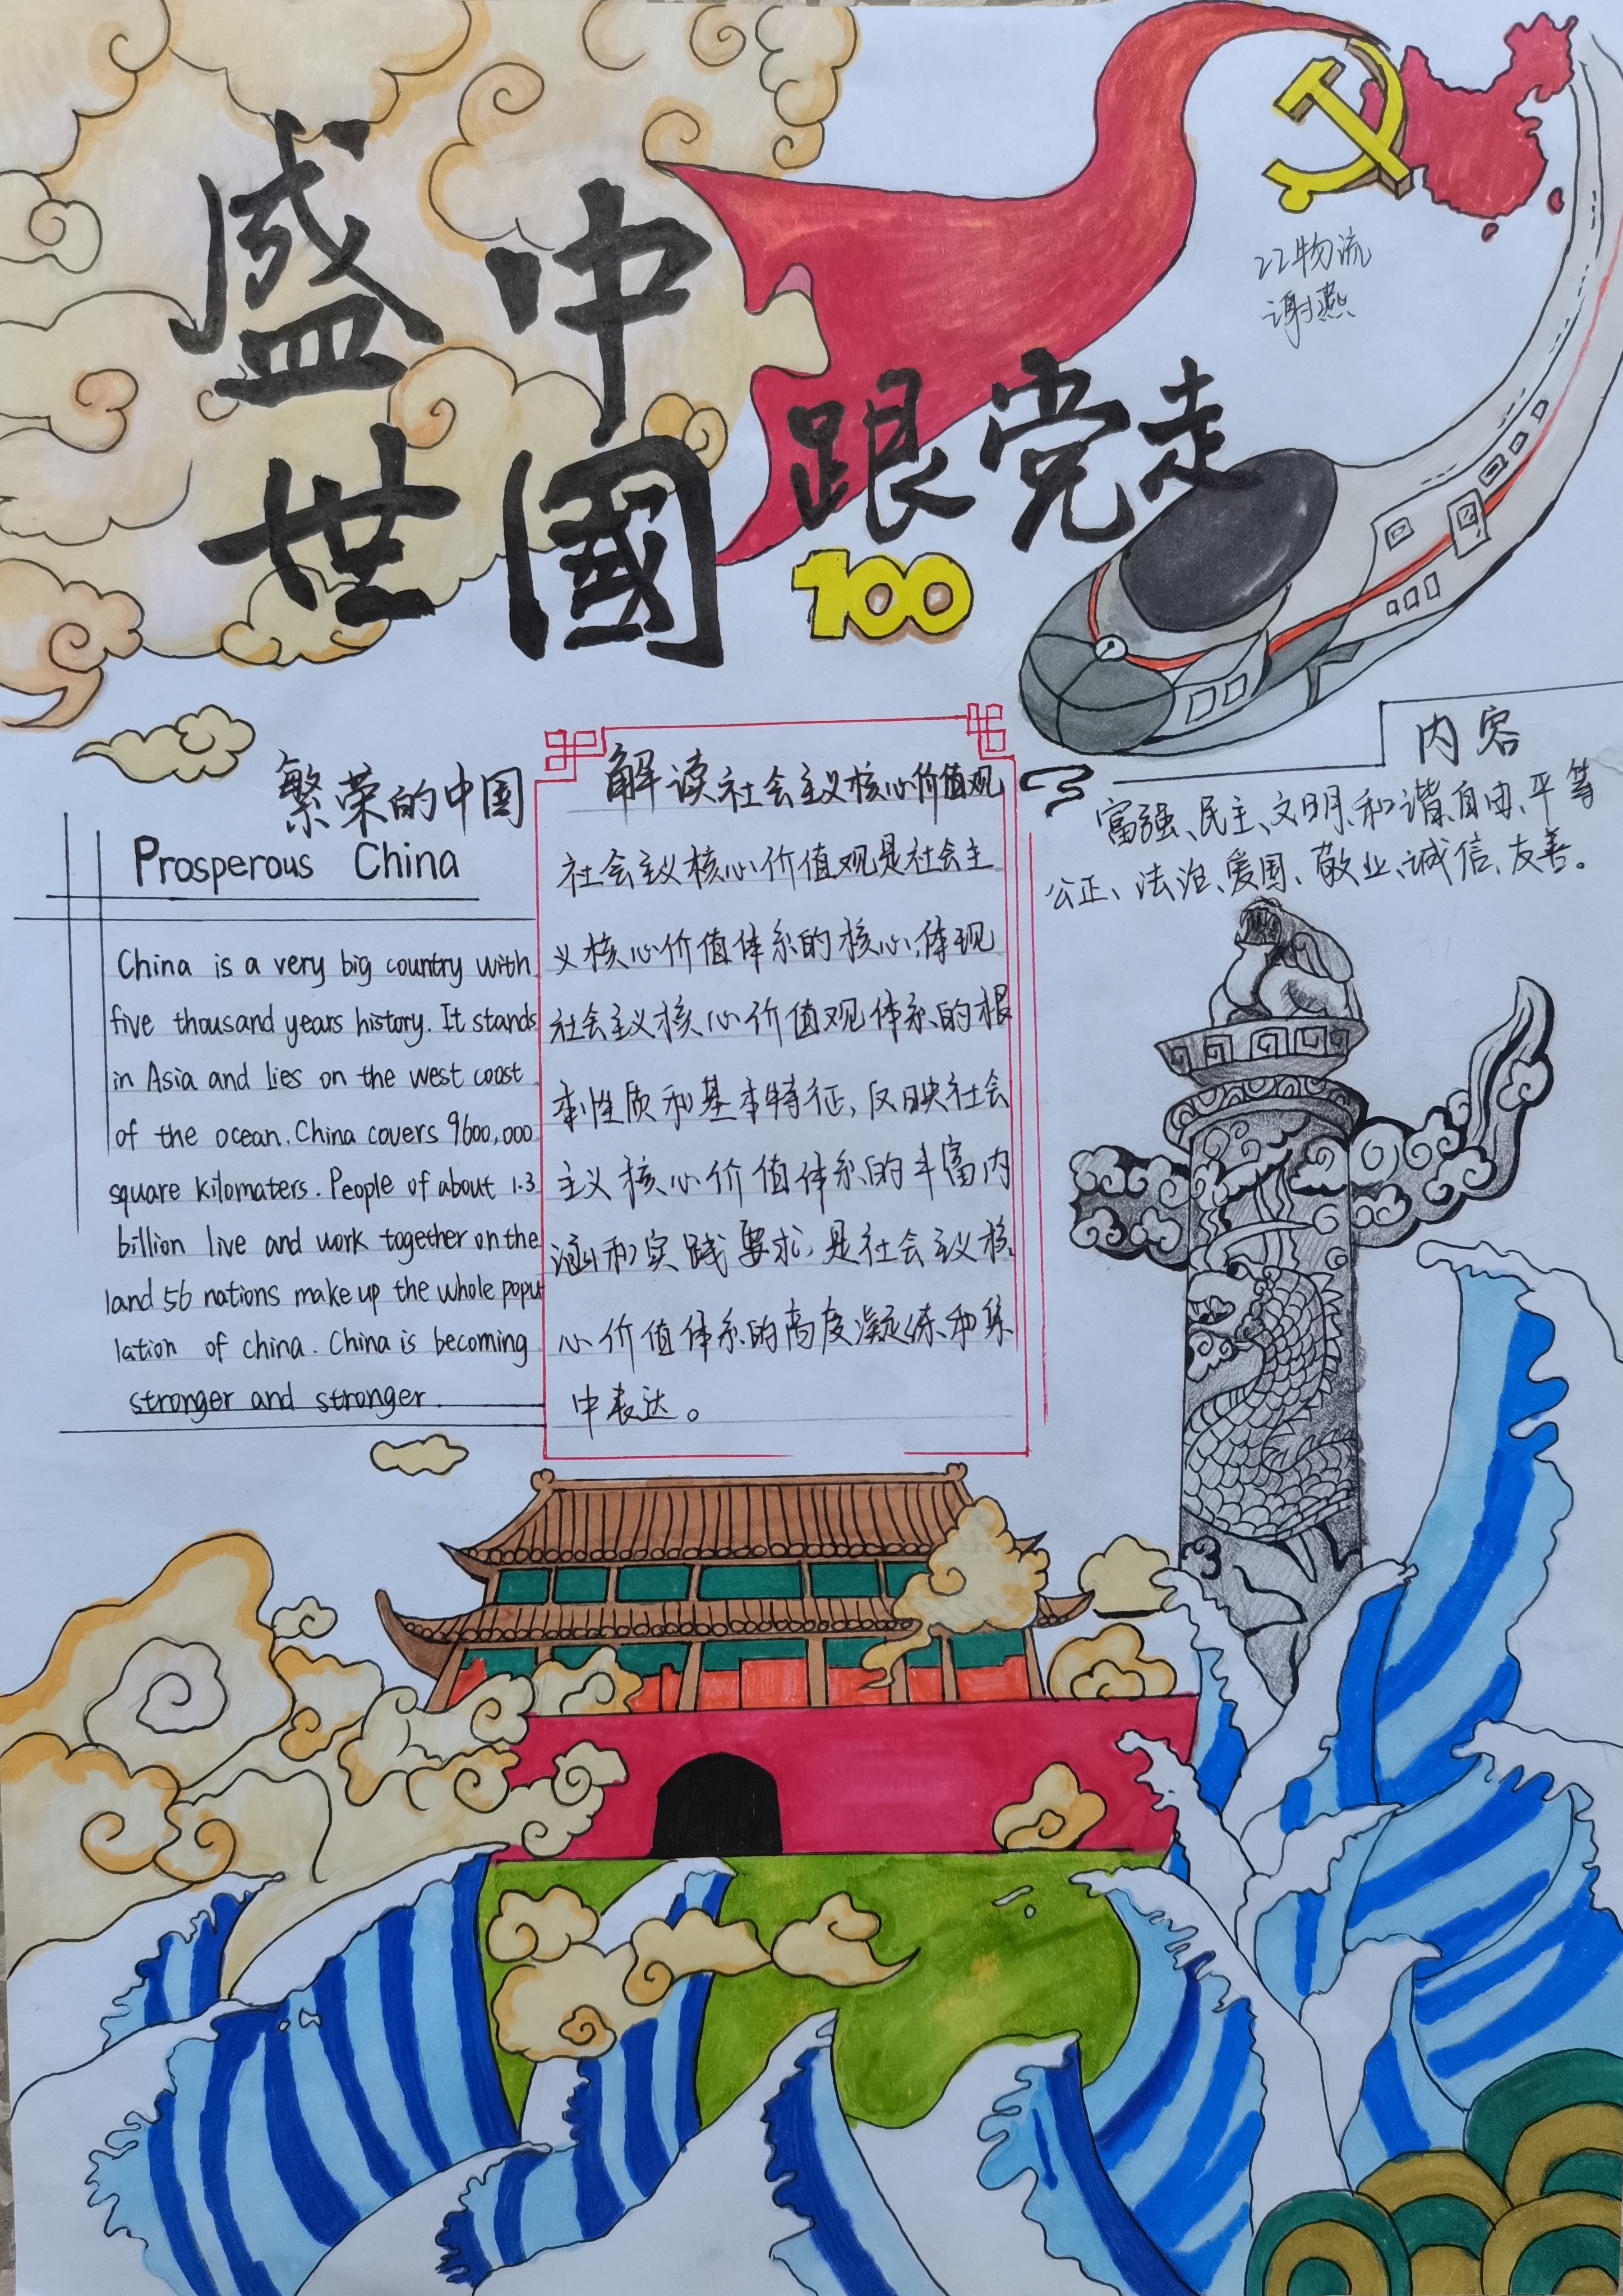 盛世
中國
跟党走
100
22物流
谢燕
繁荣的中国
Prosperous China
China is a very big country with
five thousand years history. It stands
in Asia and lies on the west coast
of the ocean. China covers 9600,000
square kilomaters. People of about 1.3
billion live and work together on the
land 56 nations make up the whole popu
lation of china. China is becoming
stronger and stronger.
解读社会主义核心价值观
社会主义核心价值观是社会主
义核心价值体系的核心,体现
社会主义核心价值观体系的根
本性质和基本特征,反映社会
主义核心价值体系的丰富内
涵和实践要求,是社会主义核
心价值体系的高度凝练和集
中表达。
内容
富强、民主、文明、和谐、自由、平等
公正、法治、爱国、敬业、诚信、友善。